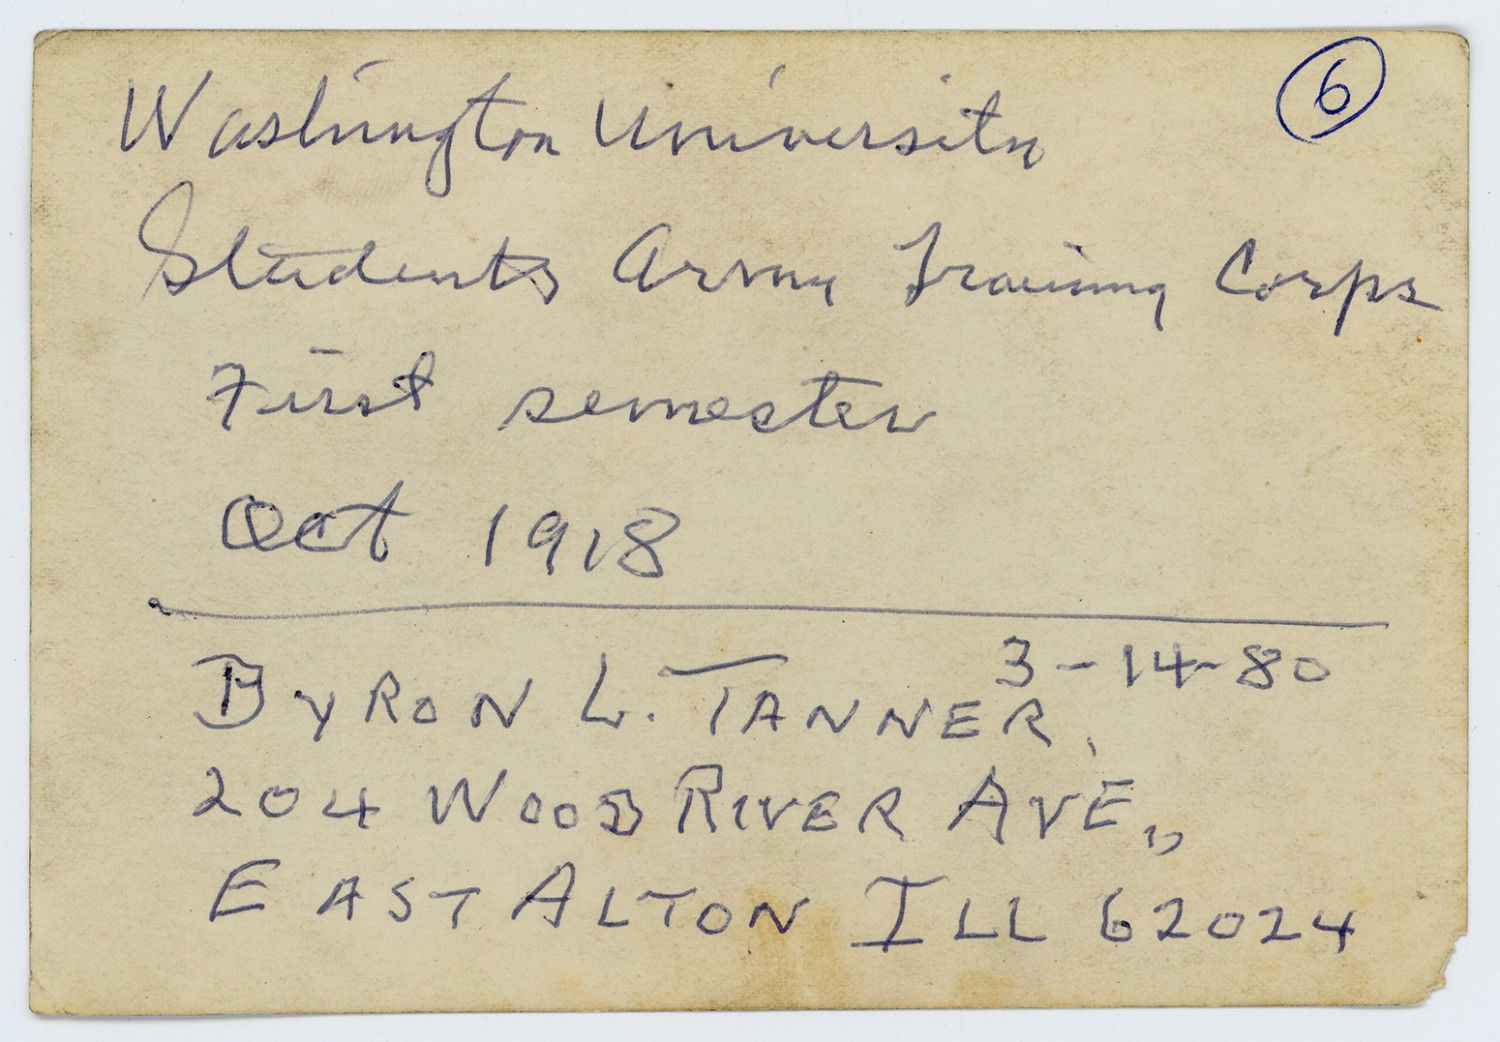 6
Washington University
Students Army Training Corps
First semester
Oct 1918
3-14-80
BYRON L. TANNER,
204 WOOD RIVER AVE.,
EAST ALTON ILL 62024